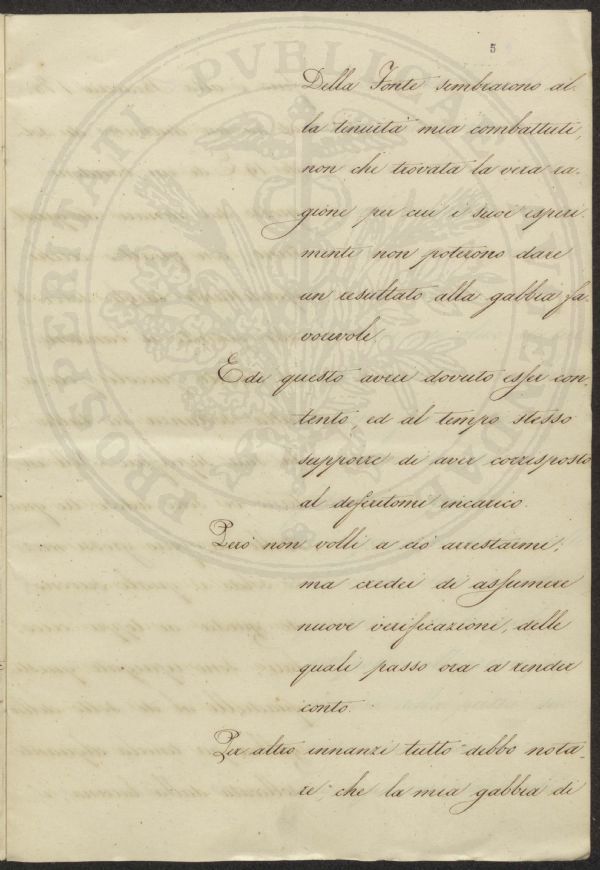 5
Della Fonte sembrarono al-
la tenuità mia combattute,
non che trovata la vera ra-
gione per cui i suoi esperi-
menti non poterono dare
un resultato alla gabbia fa-
vorevole.
E di questo avrei dovuto esser con-
tento, ed al tempo stesso
supporre di aver corrisposto
al deferitomi incarico.
Però non volli a ciò arrestarmi;
ma credei di assumere
nuove verificazioni, delle
quali passo ora a render
conto.
Per altro innanzi tutto debbo nota-
re; che la mia gabbia di
PROSPERITATI PVBLICAE AVGENDAE